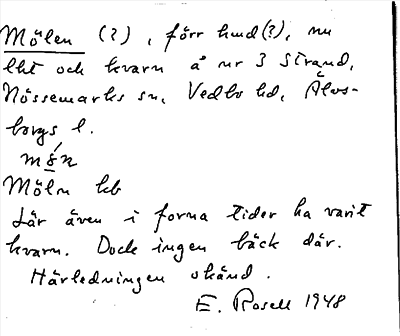 Mölen (?), förr hmd(?), nu
lht och kvarn å nr 3 Strand,
Nössemarks sn, Vedbo hd, Älvs-
borgs l.
Möln kb
Lär även i forna tider ha varit
kvarn. Dock ingen bäck där.
Härledningen okänd.
E. Rosell 1948